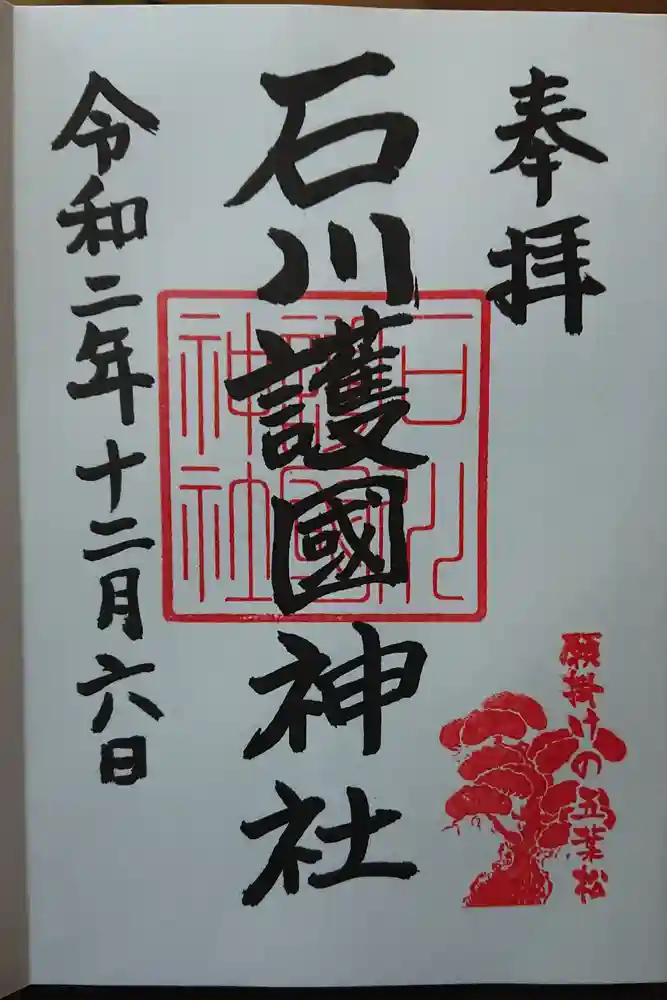 奉拝
石川護國神社
石川護國神社
令和二年十二月六日
願掛けの五葉松